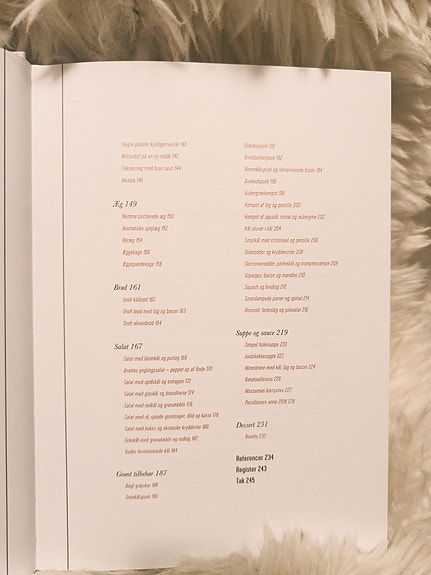 kyllingeinvertål 140
Millionbøf på en ny måde 142
Flæskesteg med brun sovs 144
Moussa 146
Æg 149
Nemme pocherede æg 150
Aromatiske spejlæg 152
Røræg 154
Æggekage 156
Æggepandekage 158
Brød 161
Groft kålbrød 162
Groft brød med løg og bacon 163
Groft olivenbrød 164
Salat 167
Salat med blomkål og purløg 168
Anettes ynglingssalat – peppet op af Rode 170
Salat med spidskål og estragon 172
Salat med glaskål og brøndkarse 174
Salat med rødkål og granatæble 176
Salat med rå, spiralede grøntsager, dild og karse 178
Salat med kokos og eksotiske krydderier 180
Grønkål med granatæble og rødløg 182
Rodes fermenterede kål 184
Grønt tilbehør 187
Bagt græskar 188
Grønkålspuré 190
Græskarpuré 192
Knoldselleripuré 192
Rosenkålspuré og råmarinerede blade 194
Avokadopuré 196
Auberginekompot 198
Kompot af løg og persille 200
Kompot af squash, tomat og aubergine 202
Kål stuvet i kål 204
Smørkål med citronskal og persille 206
Gulerødder og krydderurter 206
Skorzonerrødder, palmekål og trompetsvampe 208
Asparges, bacon og mandler 210
Squash og hvidløg 212
Smørdampede porrer og spinat 214
Broccoli, forårsløg og julesalat 216
Suppe og sauce 219
Simpel fiskesuppe 220
Jordskokkesuppe 222
Minestrone med kål, løg og bacon 224
Ratatouillesovs 226
Massaman-karrysovs 227
Persillesovs anno 2016 228
Dessert 231
Bounty 232
Referencer 234
Register 243
Tak 245